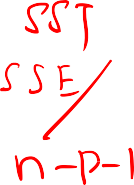 SST
SSE/
n-p-1